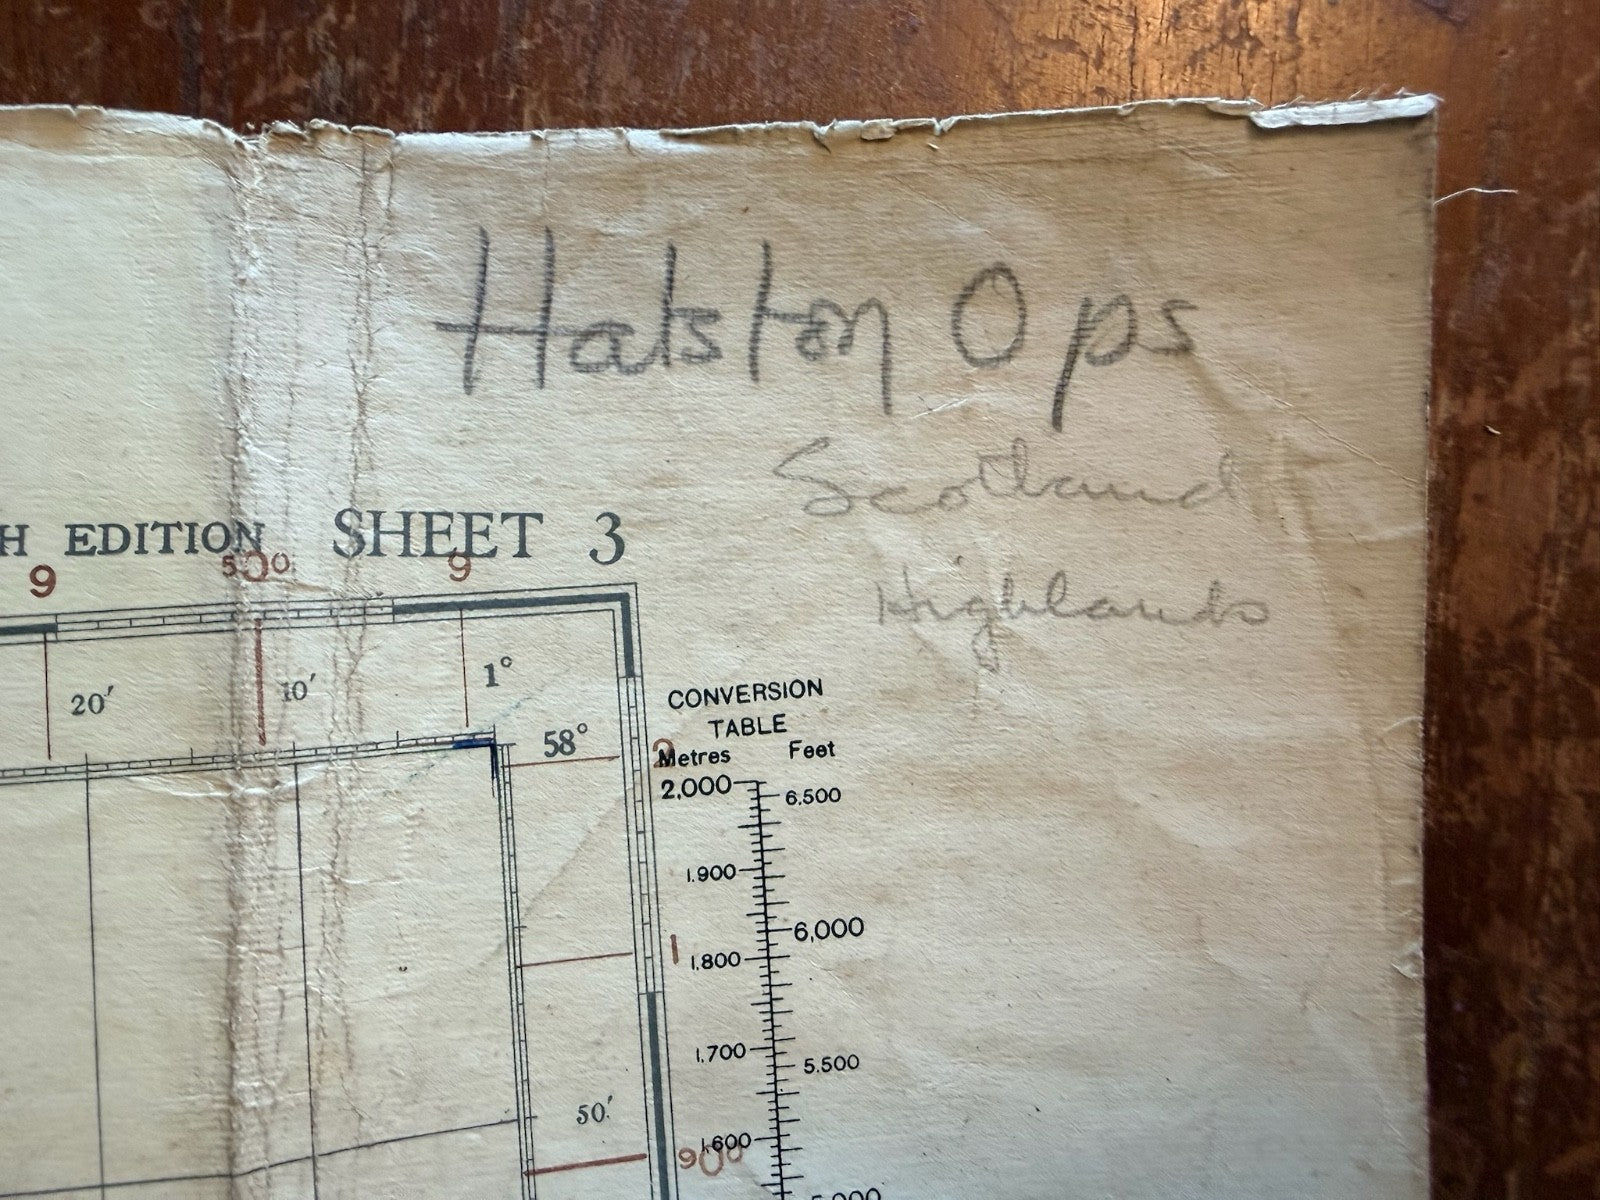 Halston Ops
Scotland
Highlands
H EDITION SHEET 3
9 500 9
20′ 10′ 1°
58°
2
CONVERSION
TABLE
Metres Feet
2,000 6,500
1,900
6,000
1
1,800
1,700
5,500
50′
1,600
900
5,000